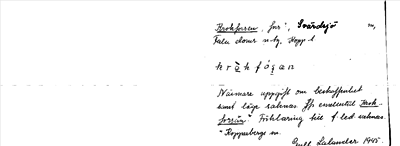 Krokforsen, fors, Svärdsjö sn,
Falu domsaga, Kopp. l
krọ̄kfọ́ṣạn
Närmare uppgift om beskaffenhet
samt läge saknas. Jfr eventuellt Krok-
forsen. Förklaring till f. led saknas.
Kopparbergs
Gull Lalander 1945.